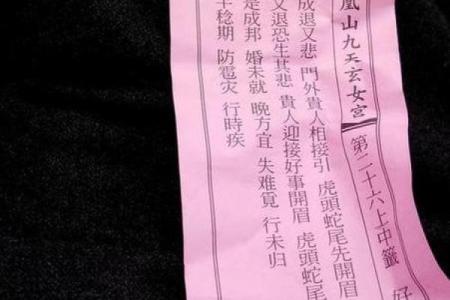 凰山九天玄女宮
第二十六上中籤 好
成退又悲 門外貴人相接引 虎頭蛇尾先開眉
又退恐生其悲 貴人迎接好事開眉 虎頭蛇尾
是成邦 婚未就 晚方宜 失难覓 行未归
稔期 防雹灾 行時疾